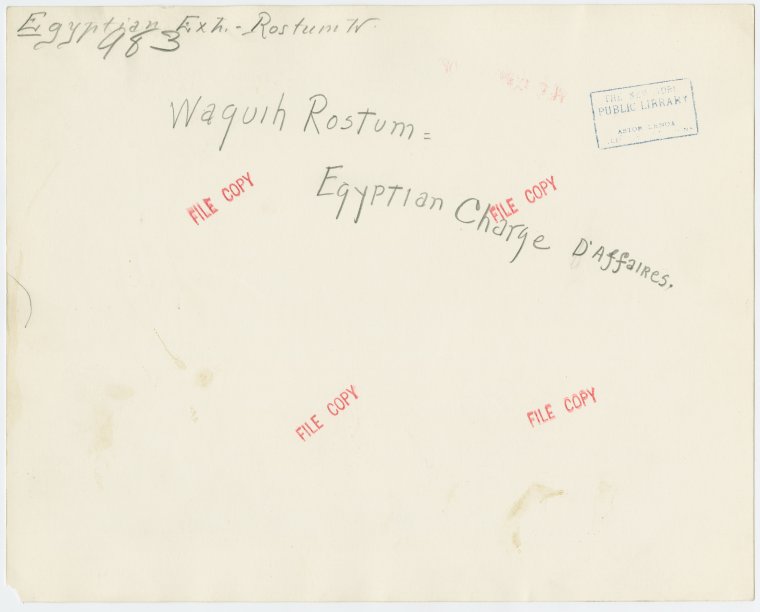 Egyptian Exh. - Rostum W
983
Waguih Rostum =
Egyptian Charge D'Affaires.
THE NEW YORK
PUBLIC LIBRARY
ASTOR LENOX
FILE COPY
FILE COPY
FILE COPY
FILE COPY